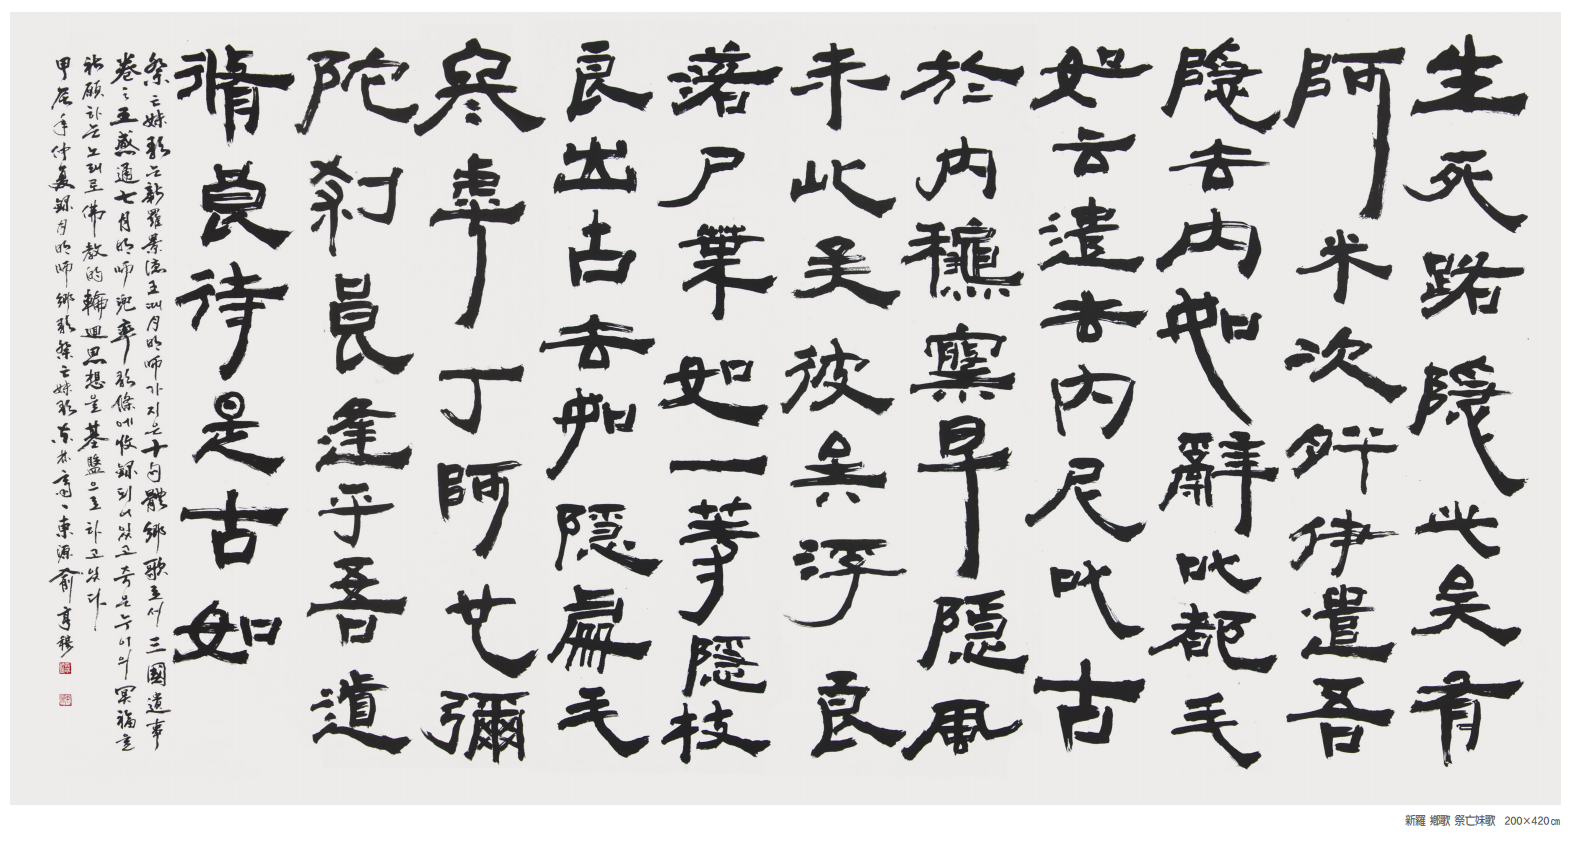 生死路隱此矣有
阿米次肹伊遣吾
隱去内如辭叱都毛
如云遣去内尼叱古
於内穐察早隱風
未此矣彼矣浮良
落尸葉如一等隱枝
良出古去奴隱處毛
寒乎丁阿也彌
陀刹良逢乎吾道
脩良待是古如
祭亡妹歌는 新羅景德王때 月明師가 지은 十句體 鄕歌로서 三國遺事
卷之五 感通七 月明師 兜率歌條에 收錄되어 있고 죽은 누이의 冥福을
祈願하는 노래로 佛敎的 輪廻思想을 基盤으로 하고 있다
甲辰年 仲夏 錄月明師鄕歌祭亡妹歌 東源 兪
新羅 鄕歌 祭亡妹歌 200×420㎝